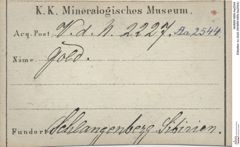 K. K. Mineralogisches Museum.
Acq. Post. V. d. N. 2227. Ba. 2544
Name. Gold.
Fundort Schlangenberg Sibirien.